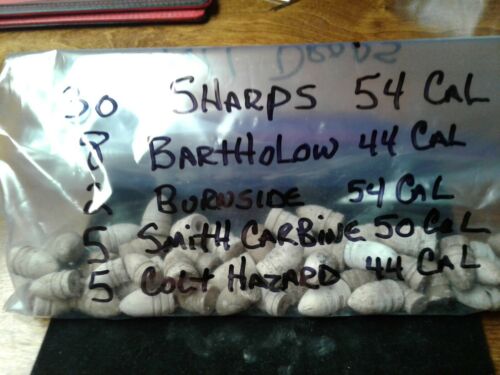 30 SHARPS 54 CAL
8 BARTHOLOW 44 CAL
2 BURNSIDE 54 CAL
5 SMITH CARBINE 50 CAL
5 COLT HAZARD 44 CAL